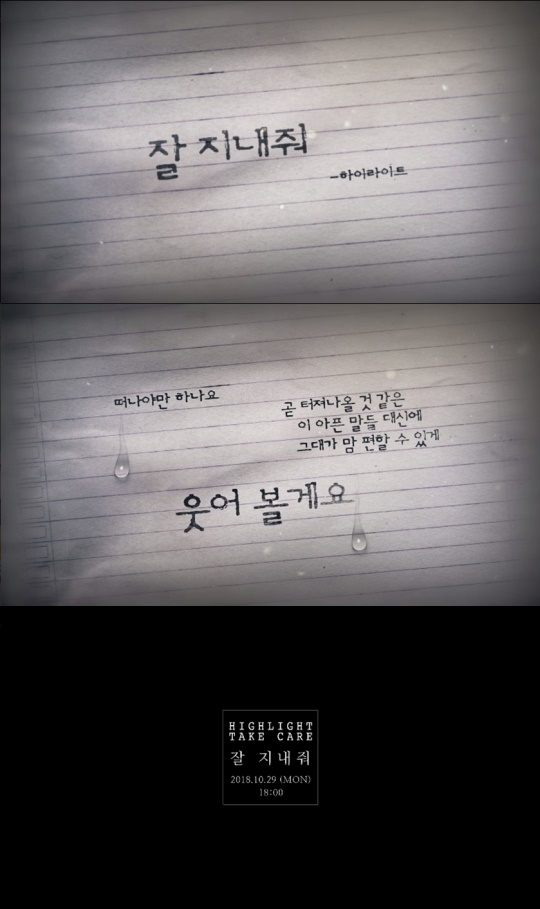 잘 지내줘
-하이라이트
떠나야만 하나요
곧 터져나올 것 같은
이 아픈 말들 대신에
그대가 맘 편할 수 있게
웃어 볼게요
HIGHLIGHT
TAKE CARE
잘 지내줘
2018.10.29 (MON)
18:00